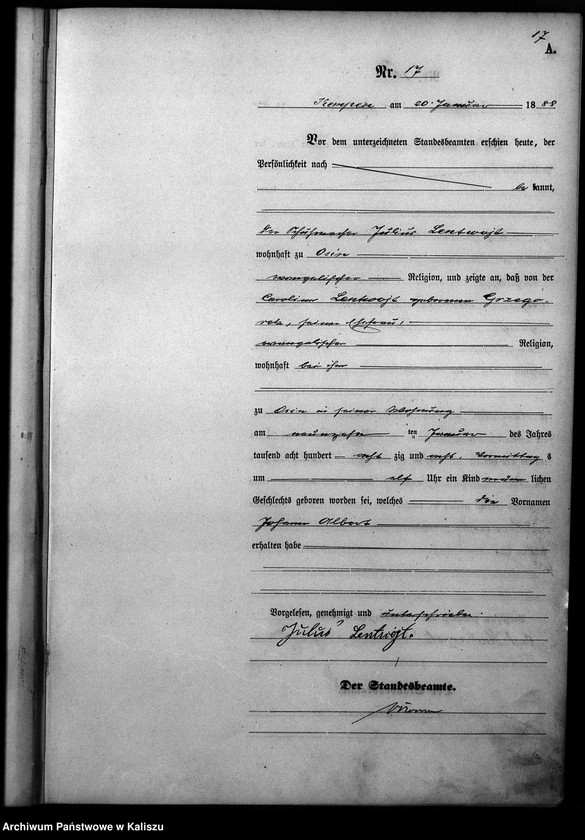 17
A.
Nr. 17
Kempen am 20. Januar 1888
Vor dem unterzeichneten Standesbeamten erschien heute, der
Persönlichkeit nach
be kannt,
der Schuhmacher Julius Lentwojt
wohnhaft zu Osin
evangelischer Religion, und zeigte an, daß von der
Caroline Lentwojt geborenen Grzego-
rek, seiner Ehefrau,
evangelischer Religion,
wohnhaft bei ihm
zu Osin in seiner Wohnung
am neunzehn ten Januar des Jahres
tausend acht hundert acht zig und acht, Vormittag s
um elf Uhr ein Kind männ lichen
Geschlechts geboren worden sei, welches die Vornamen
Johann Albert
erhalten habe
Vorgelesen, genehmigt und unterschrieben.
Julius Lentwojt.
Der Standesbeamte.
Archiwum Państwowe w Kaliszu